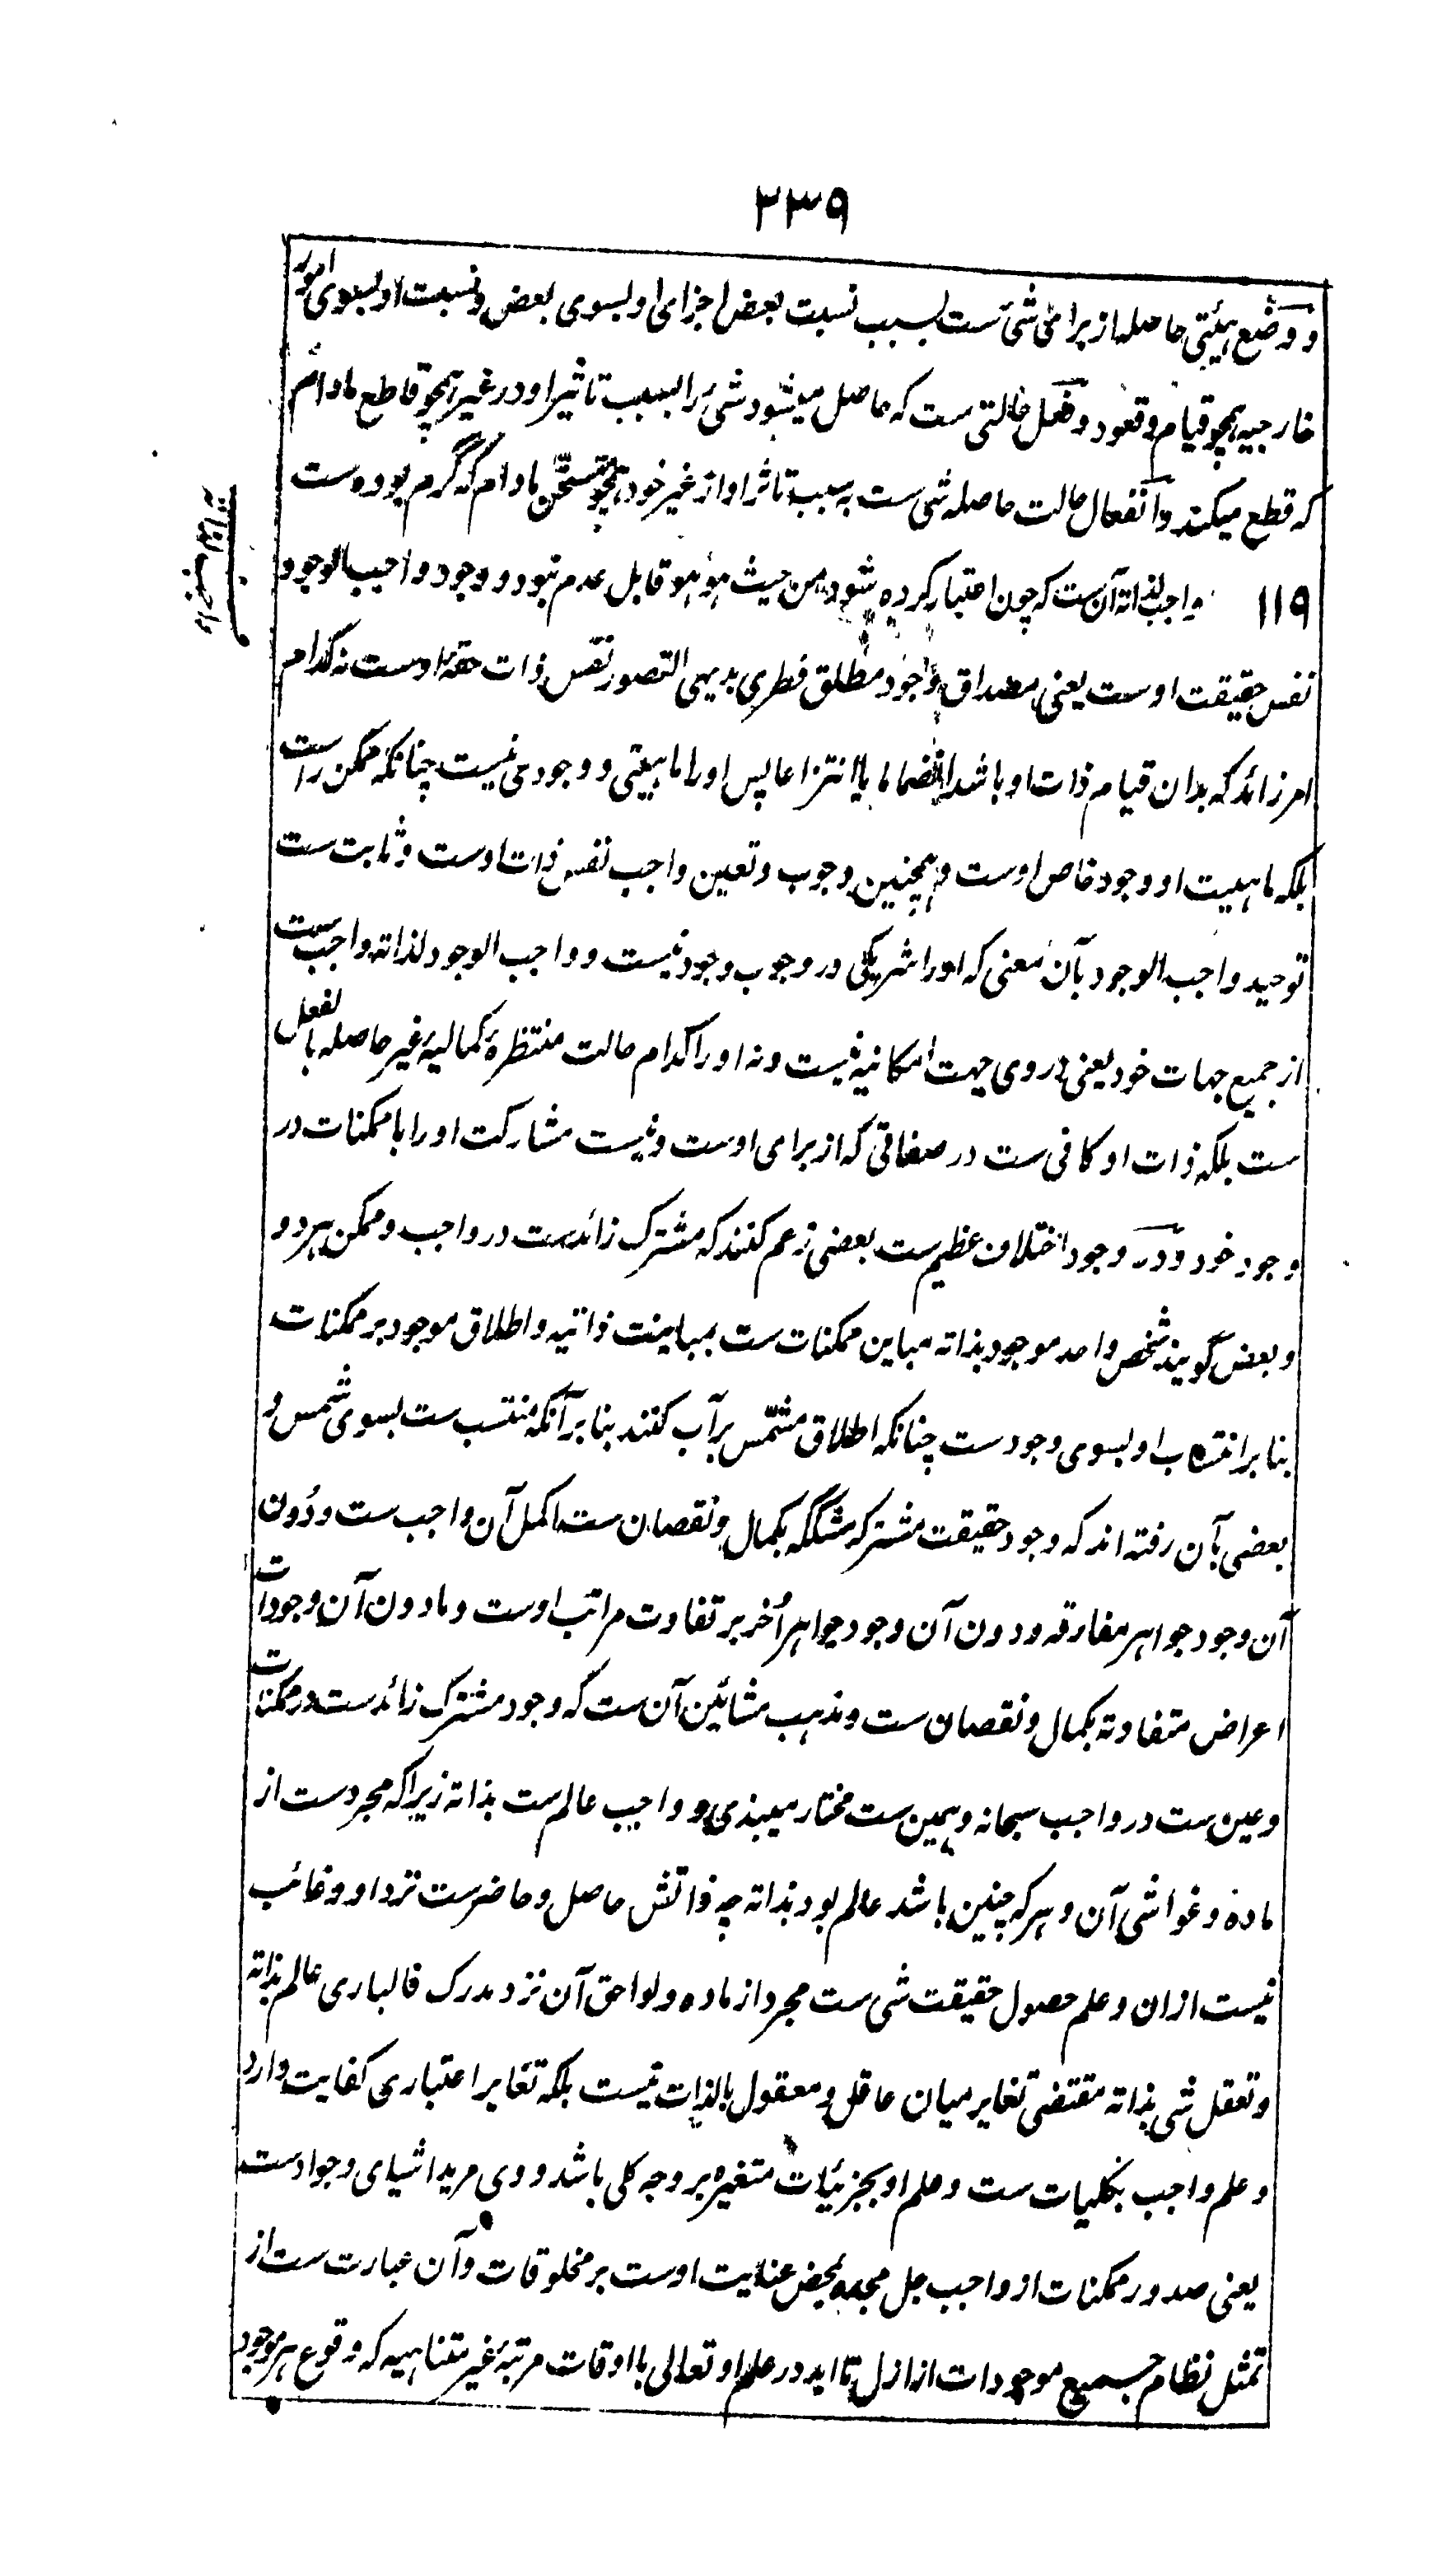 ۲۳۹
و وضع هیئتی حاصله از برای شئ ست بسبب نسبت بعض اجزای او بسوی بعض و نسبت او بسوی امور
خارجیه همچو قیام و قعود و فعل حالتی ست که حاصل میشود شی را بسبب تاثیر او در غیر همچو قاطع مادام
که قطع میکند و انفعال حالت حاصله شی ست به سبب تاثر او از غیر خود همچو متسخّن مادام که گرم بوده ست
۱۱۹ واجب لذاته آن ست که چون اعتبار کرده شود من حیث هو هو قابل عدم نبود و وجود واجب الوجود
نفس حقیقت اوست یعنی مصداق وجود مطلق فطری بدیهی التصور نفس ذات حقه اوست نه کدام
امر زائد که بدان قیام ذات او باشد انضماما یا انتزاعا پس او را ماهیتی و وجودی نیست چنانکه ممکن راست
بلکه ماهیت او وجود خاص اوست و همچنین وجوب و تعین واجب نفس ذات اوست و ثابت ست
توحید واجب الوجود بآن معنی که او را شریکی در وجوب وجود نیست و واجب الوجود لذاته واجب ست
از جمیع جهات خود یعنی در وی جهت امکانیه نیست و نه او را کدام حالت منتظرهٔ کمالیهٔ غیر حاصله بالفعل
ست بلکه ذات او کافی ست در صفاتی که از برای اوست و نیست مشارکت او را با ممکنات در
وجود خود و در وجود اختلاف عظیم ست بعضی زعم کنند که مشترک زائد ست در واجب و ممکن هر دو
و بعض گویند شخص واحد موجود بذاته مباین ممکنات ست بمباینت ذاتیه و اطلاق موجود بر ممکنات
بنا بر انتساب او بسوی وجود ست چنانکه اطلاق مشمّس بر آب کنند بنا بر آنکه منتسب ست بسوی شمس و
بعضی بآن رفته اند که وجود حقیقت مشترکه مشککه بکمال و نقصان ست اکمل آن واجب ست و دُون
آن وجود جواهر مفارقه و دون آن وجود جواهر اُخر بر تفاوت مراتب اوست و مادون آن وجودات
اعراض متفاوته بکمال و نقصان ست و مذهب مشائین آن ست که وجود مشترک زائد ست در ممکنات
و عین ست در واجب سبحانه و همین ست مختار میبذی و واجب عالم ست بذاته زیرا که مجرد ست از
ماده و غواشی آن و هر که چنین باشد عالم بود بذاته چه ذاتش حاصل و حاضر ست نزد او و غائب
نیست ازان و علم حصول حقیقت شی ست مجرد از ماده و لواحق آن نزد مدرک فالباری عالم بذاته
و تعقل شی بذاته مقتضی تغایر میان عاقل و معقول بالذات نیست بلکه تغایر اعتباری کفایت دارد
و علم واجب بکلیات ست و علم او بجزئیات متغیره بر وجه کلی باشد و وی مرید اشیای و جواد ست
یعنی صدور ممکنات از واجب جل مجده بمحض عنایت اوست بر مخلوقات و آن عبارت ست از
تمثل نظام جمیع موجودات از ازل تا ابد در علم او تعالی با اوقات مرتبهٔ غیر متناهیه که وقوع هر موجود